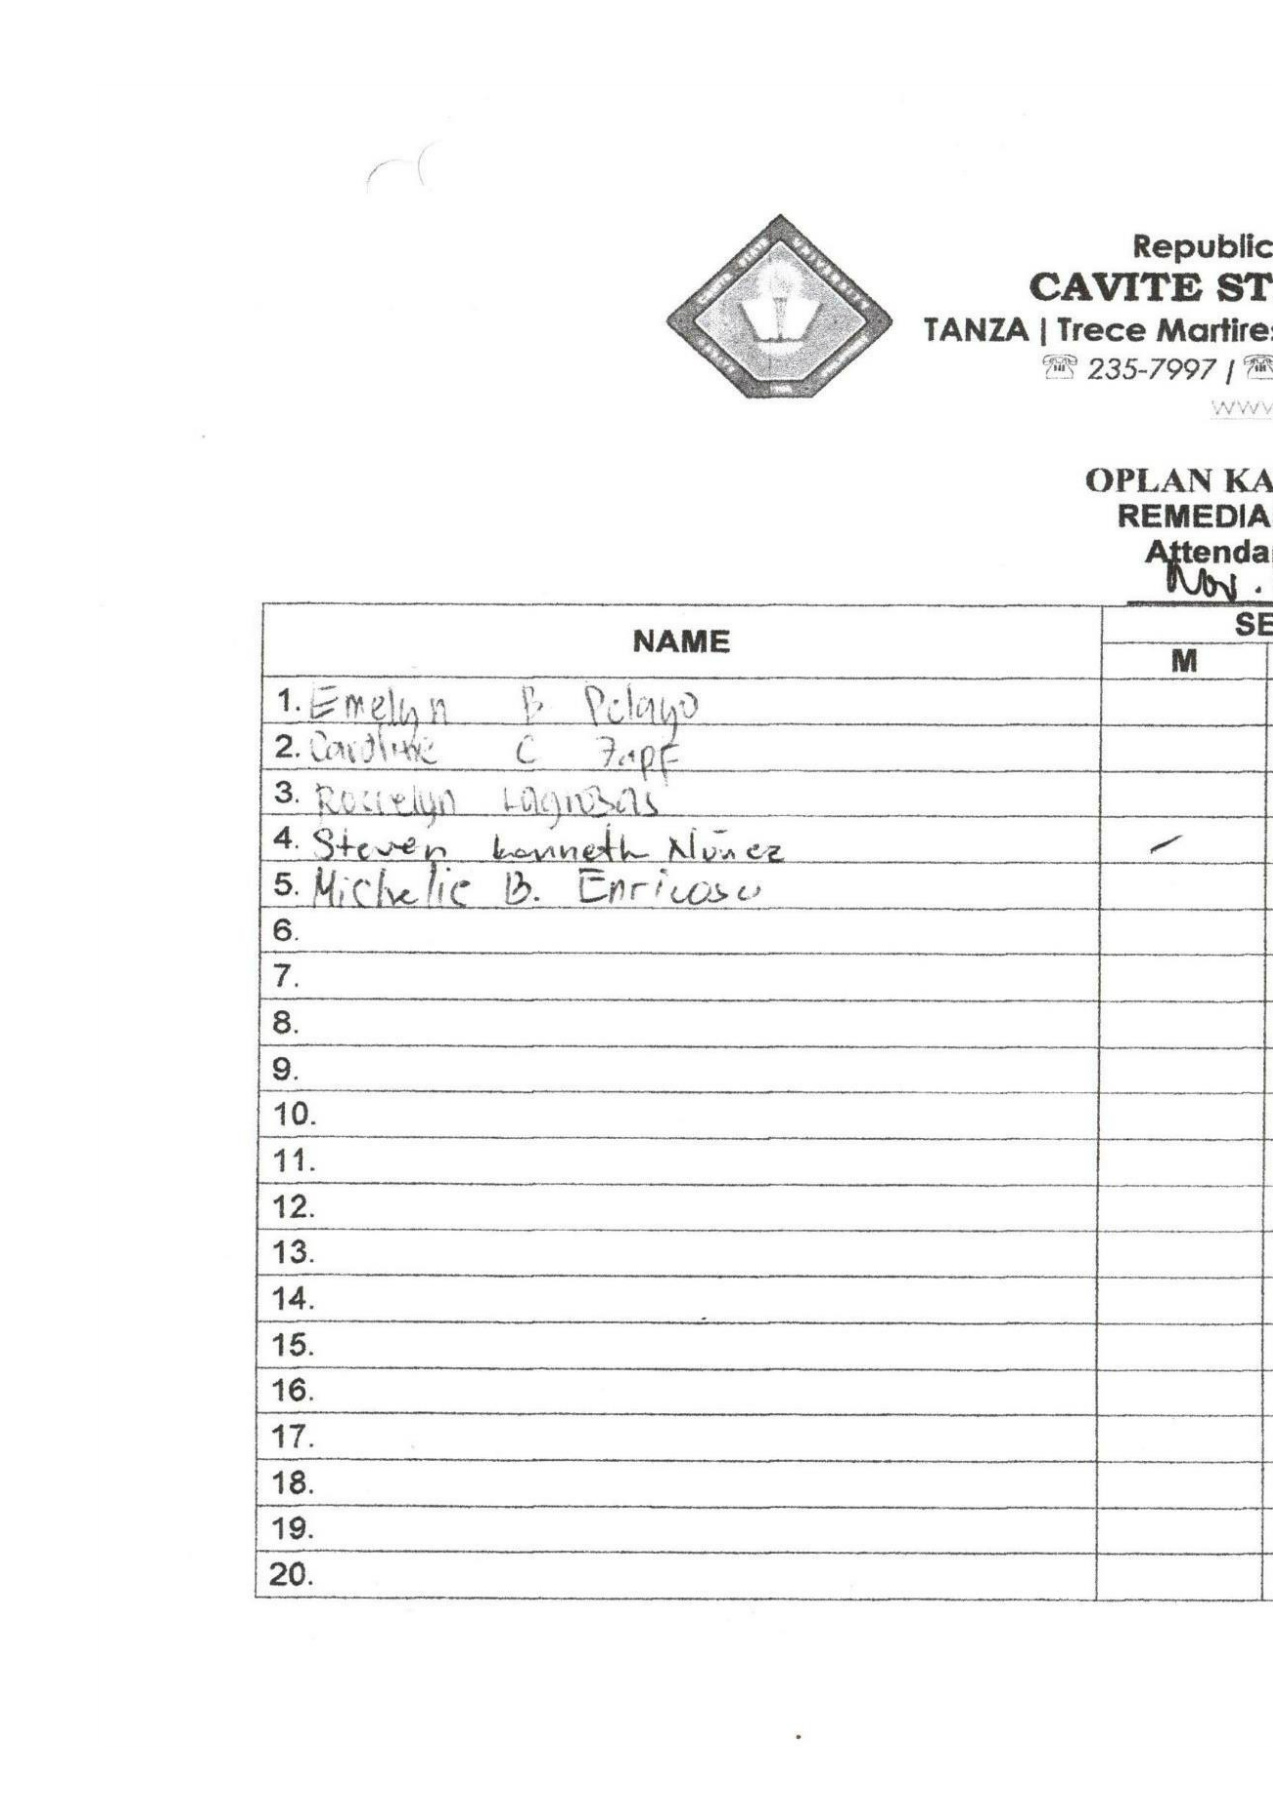 Republic
CAVITE ST
TANZA | Trece Martires
☎ 235-7997 / ☎
www
OPLAN KA
REMEDIA
Attenda
Nov.
NAME
SE
M
1. Emelyn B Pelayo
2. Caroline C Zapf
3. Roselyn Lagrosas
4. Steven kenneth Núñez
5. Michelle B. Enricoso
6.
7.
8.
9.
10.
11.
12.
13.
14.
15.
16.
17.
18.
19.
20.